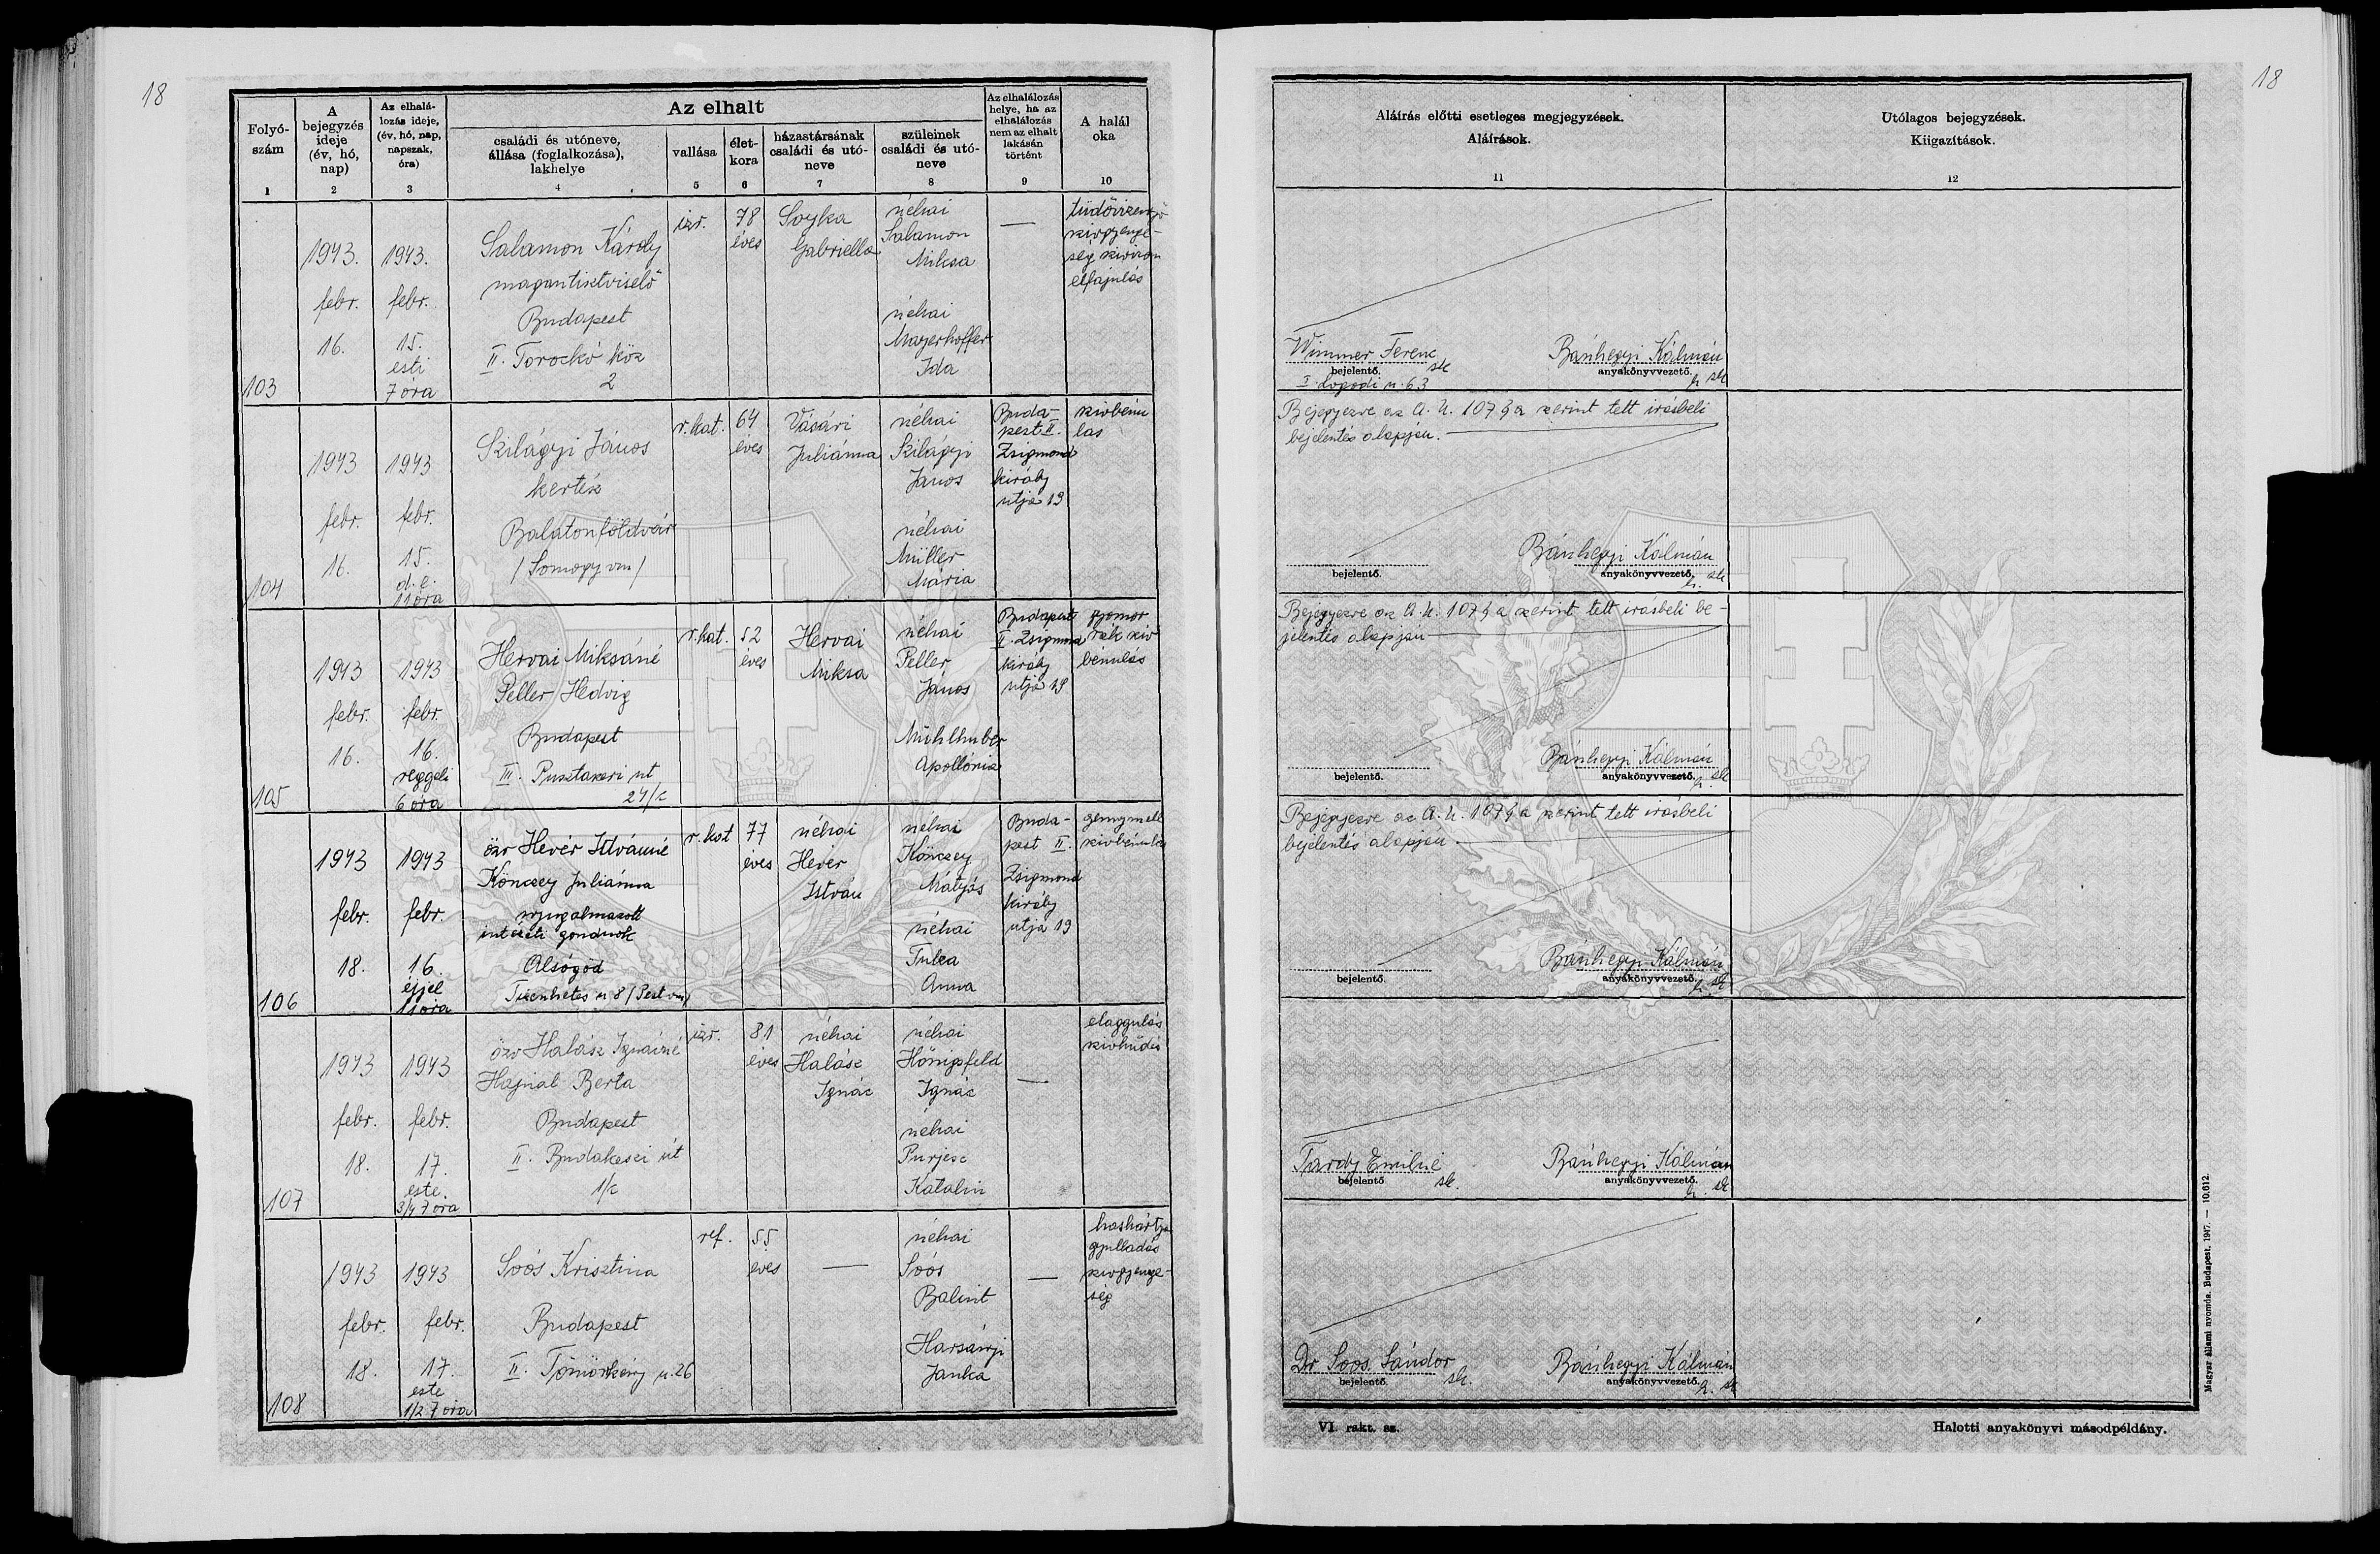 18
18
Folyó-
szám
1
A
bejegyzés
ideje
(év, hó,
nap)
2
Az elhalá-
lozás ideje,
(év, hó, nap,
napszak,
óra)
3
Az elhalt
családi és utóneve,
állása (foglalkozása),
lakhelye
4
vallása
5
élet-
kora
6
házastársának
családi és utó-
neve
7
szüleinek
családi és utó-
neve
8
Az elhalálozás
helye, ha az
elhalálozás
nem az elhalt
lakásán
történt
9
A halál
oka
10
Aláírás előtti esetleges megjegyzések.
Aláírások.
11
Utólagos bejegyzések.
Kiigazítások.
12
103
1943.
febr.
16.
1943.
febr.
15.
esti
7 óra
Salamon Károly
magántisztviselő
Budapest
II. Torockó köz
2
izr.
78
éves
Soyka
Gabriella
néhai
Salamon
Miksa
néhai
Mayerhoffer
Ida
—
szívgyenge-
ség szívizom
elfajulás
Wimmer Ferenc sk
bejelentő.
I. Logodi u. 63
Bánhegyi Kálmán
anyakönyvvezető.
h sk
104
1943
febr.
16.
1943
febr.
15.
d.e.
11 óra
Szilágyi János
kertész
Balatonföldvár
/Somogy vm/
r. kat.
64
éves
Vásári
Juliánna
néhai
Szilágyi
János
néhai
Müller
Mária
Buda-
pest II.
Zsigmond
király
utja 19
szívbénu
lás
Bejegyezve az A. U. 107 § a szerint tett irásbeli
bejelentés alapján.
bejelentő.
Bánhegyi Kálmán
anyakönyvvezető.
h. sk
105
1943
febr.
16.
1943
febr.
16.
reggeli
6 óra
Hervai Miksáné
Peller Hedvig
Budapest
III. Pusztaszeri ut
24/c
r. kat.
52
éves
Hervai
Miksa
néhai
Peller
János
Mühlhuber
Apollónia
Budapest
II. Zsigmond
király
utja 19
gyomor
rák szív
bénulás
Bejegyezve az A. U. 107 § a szerint tett irásbeli be-
jelentés alapján
bejelentő.
Bánhegyi Kálmán
anyakönyvvezető.
h. sk
106
1943
febr.
18.
1943
febr.
16.
éjjel
11 óra
özv Hevér Istvánné
Könczey Juliánna
nyugalmazott
intézeti gondnok
Alsógöd
Tizenhetes u 8 /Pest vm/
r. kat
77
éves
néhai
Hevér
István
néhai
Könczey
Mátyás
néhai
Anna
Buda-
pest II.
Zsigmond
király
utja 19
gennymell
szívbénulás
Bejegyezve az A. U. 107 § a szerint tett irásbeli
bejelentés alapján.
bejelentő.
Bánhegyi Kálmán
anyakönyvvezető.
h. sk
107
1943
febr.
18.
1943
febr.
17.
este.
3/4 7 óra
özv Halász Ignácné
Hajnal Berta
Budapest
II. Budakeszi út
1/c
izr.
81
éves
néhai
Halász
Ignác
néhai
Hönigsfeld
Ignác
néhai
Purjesz
Katalin
—
elaggulás
szívhűdés
Tardy Emilné sk.
bejelentő
Bánhegyi Kálmán
anyakönyvvezető.
h. sk
108
1943
febr.
18.
1943
febr.
17.
este
1/2 7 óra
Soós Krisztina
Budapest
II. Tömörkény u. 26
ref.
55
éves
—
néhai
Soós
Bálint
Harsányi
Janka
—
hashártya
gyulladás
szívgyenge-
ség
Dr Soos Sándor sk.
bejelentő.
Bánhegyi Kálmán
anyakönyvvezető.
h. sk
VI. rakt. sz.
Halotti anyakönyvi másodpéldány.
Magyar állami nyomda. Budapest, 1947. — 10.612.